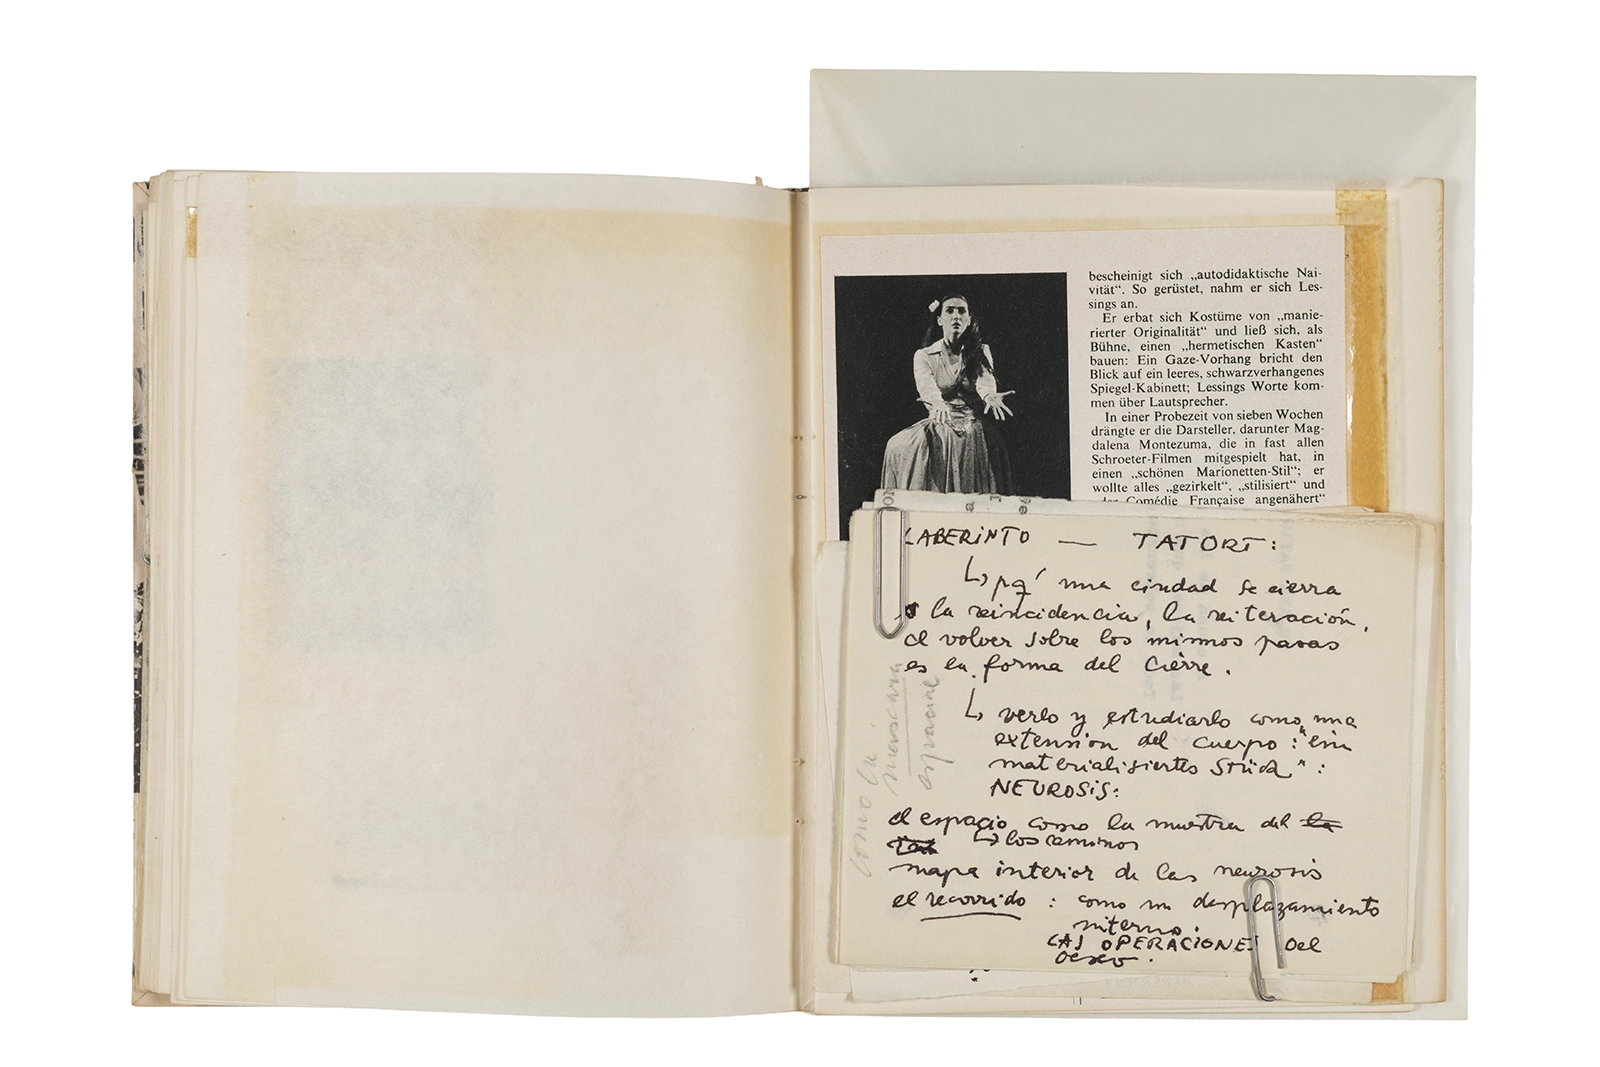 bescheinigt sich „autodidaktische Nai-
vität“. So gerüstet, nahm er sich Les-
sings an.
Er erbat sich Kostüme von „manie-
rierter Originalität“ und ließ sich, als
Bühne, einen „hermetischen Kasten“
bauen: Ein Gaze-Vorhang bricht den
Blick auf ein leeres, schwarzverhangenes
Spiegel-Kabinett; Lessings Worte kom-
men über Lautsprecher.
In einer Probezeit von sieben Wochen
drängte er die Darsteller, darunter Mag-
dalena Montezuma, die in fast allen
Schroeter-Filmen mitgespielt hat, in
einen „schönen Marionetten-Stil“; er
wollte alles „gezirkelt“, „stilisiert“ und
„der Comédie Française angenähert“
LABERINTO — TATORT:
↳ pq' una ciudad se cierra
la reincidencia, la reiteración,
el volver sobre los mismos pasos
es la forma del cierre.
↳ verlo y estudiarlo como una
extension del cuerpo: "ein
materialisiertes Stück":
NEUROSIS:
el espacio como la muestra del la
↳ los caminos
mapa interior de las neurosis
el recorrido: como un desplazamiento
interno.
LAS OPERACIONES DEL
DESEO.
como la
mascara
espacial